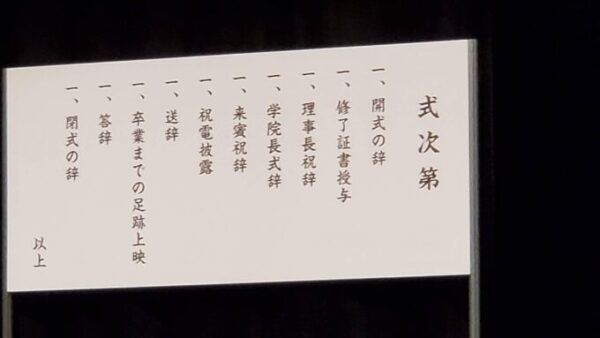 式次第
一、開式の辞
一、修了証書授与
一、理事長祝辞
一、学院長式辞
一、来賓祝辞
一、祝電披露
一、送辞
一、卒業までの足跡上映
一、答辞
一、閉式の辞
以上